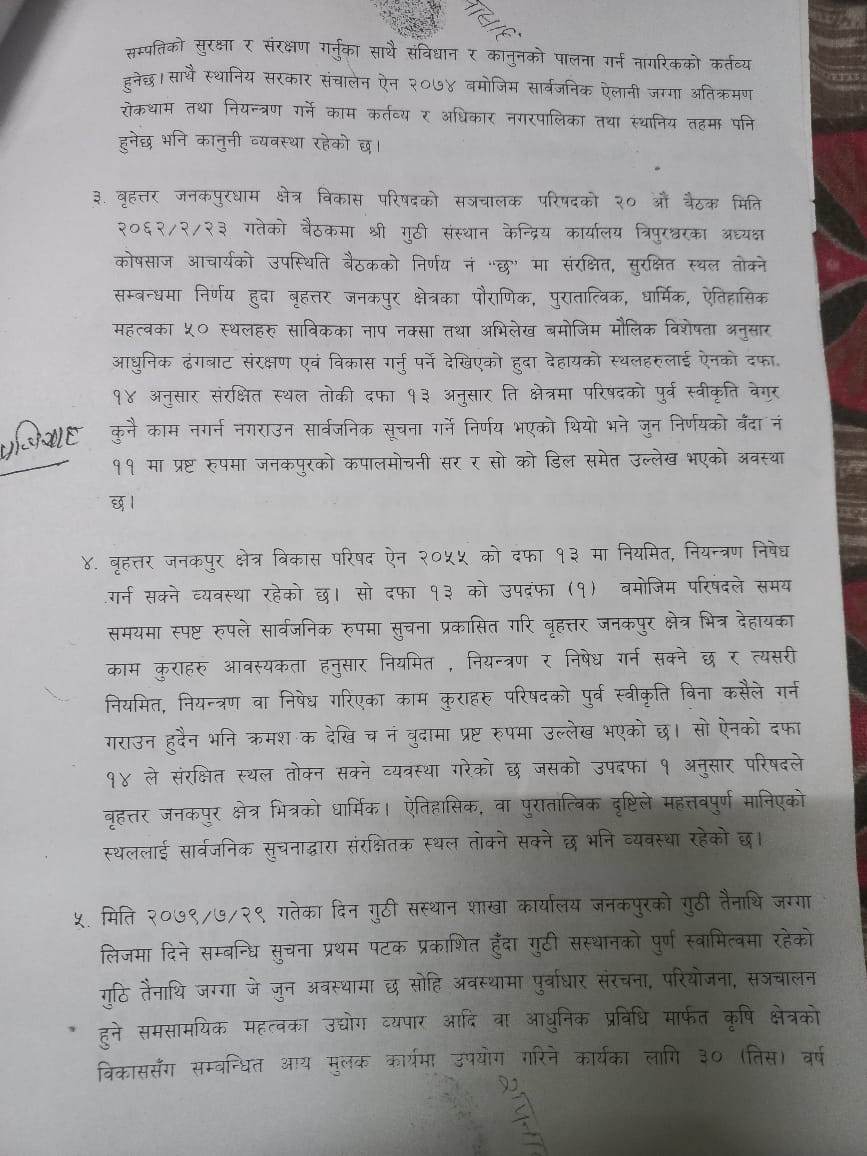 सम्पतिको सुरक्षा र संरक्षण गर्नुका साथै संविधान र कानुनको पालना गर्न नागरिकको कर्तव्य
हुनेछ। साथै स्थानिय सरकार संचालन ऐन २०७४ बमोजिम सार्वजनिक ऐलानी जग्गा अतिक्रमण
रोकथाम तथा नियन्त्रण गर्ने काम कर्तव्य र अधिकार नगरपालिका तथा स्थानिय तहमा पनि
हुनेछ भनि कानुनी व्यवस्था रहेको छ।
३. बृहत्तर जनकपुरधाम क्षेत्र विकास परिषदको सञचालक परिषदको २० औं बैठक मिति
२०६२/२/२३ गतेको बैठकमा श्री गुठी संस्थान केन्द्रिय कार्यालय त्रिपुरेश्वरका अध्यक्ष
कोषसाज आचार्यको उपस्थिति बैठकको निर्णय नं "छ" मा संरक्षित, सुरक्षित स्थल तोक्ने
सम्बन्धमा निर्णय हुदा बृहत्तर जनकपुर क्षेत्रका पौराणिक, पुरातात्विक, धार्मिक, ऐतिहासिक
महत्वका ५० स्थलहरु साविकका नाप नक्सा तथा अभिलेख बमोजिम मौलिक विशेषता अनुसार
आधुनिक ढंगबाट संरक्षण एवं विकास गर्नु पर्ने देखिएको हुदा देहायको स्थलहरुलाई ऐनको दफा.
१४ अनुसार संरक्षित स्थल तोकी दफा १३ अनुसार ति क्षेत्रमा परिषदको पुर्व स्वीकृति वेगर
कुनै काम नगर्न नगराउन सार्वजनिक सूचना गर्ने निर्णय भएको थियो भने जुन निर्णयको बुँदा नं
११ मा प्रष्ट रुपमा जनकपुरको कपालमोचनी सर र सो को डिल समेत उल्लेख भएको अवस्था
छ।
४. बृहत्तर जनकपुर क्षेत्र विकास परिषद ऐन २०५५ को दफा १३ मा नियमित, नियन्त्रण निषेध
गर्न सक्ने व्यवस्था रहेको छ। सो दफा १३ को उपदफा (१) बमोजिम परिषदले समय
समयमा स्पष्ट रुपले सार्वजनिक रुपमा सुचना प्रकासित गरि बृहत्तर जनकपुर क्षेत्र भित्र देहायका
काम कुराहरु आवस्यकता हनुसार नियमित , नियन्त्रण र निषेध गर्न सक्ने छ र त्यसरी
नियमित, नियन्त्रण वा निषेध गरिएका काम कुराहरु परिषदको पुर्व स्वीकृति विना कसैले गर्न
गराउन हुदैन भनि क्रमश क देखि च नं वुदामा प्रष्ट रुपमा उल्लेख भएको छ। सो ऐनको दफा
१४ ले संरक्षित स्थल तोक्न सक्ने व्यवस्था गरेको छ जसको उपदफा १ अनुसार परिषदले
बृहत्तर जनकपुर क्षेत्र भित्रको धार्मिक। ऐतिहासिक, वा पुरातात्विक दृष्टिले महत्तवपुर्ण मानिएको
स्थललाई सार्वजनिक सुचनाद्धारा संरक्षितक स्थल तोक्ने सक्ने छ भनि व्यवस्था रहेको छ।
५. मिति २०७९/७/२९ गतेका दिन गुठी सस्थान शाखा कार्यालय जनकपुरको गुठी तैनाथि जग्गा
लिजमा दिने सम्बन्धि सुचना प्रथम पटक प्रकाशित हुँदा गुठी सस्थानको पुर्ण स्वामित्वमा रहेको
गुठि तैनाथि जग्गा जे जुन अवस्थामा छ सोहि अवस्थामा पुर्वाधार संरचना, परियोजना, सञचालन
हुने समसामयिक महत्वका उद्योग व्यपार आदि वा आधुनिक प्रविधि मार्फत कृषि क्षेत्रको
विकाससँग सम्बन्धित आय मुलक कार्यमा उपयोग गरिने कार्यका लागि ३० (तिस) वर्ष